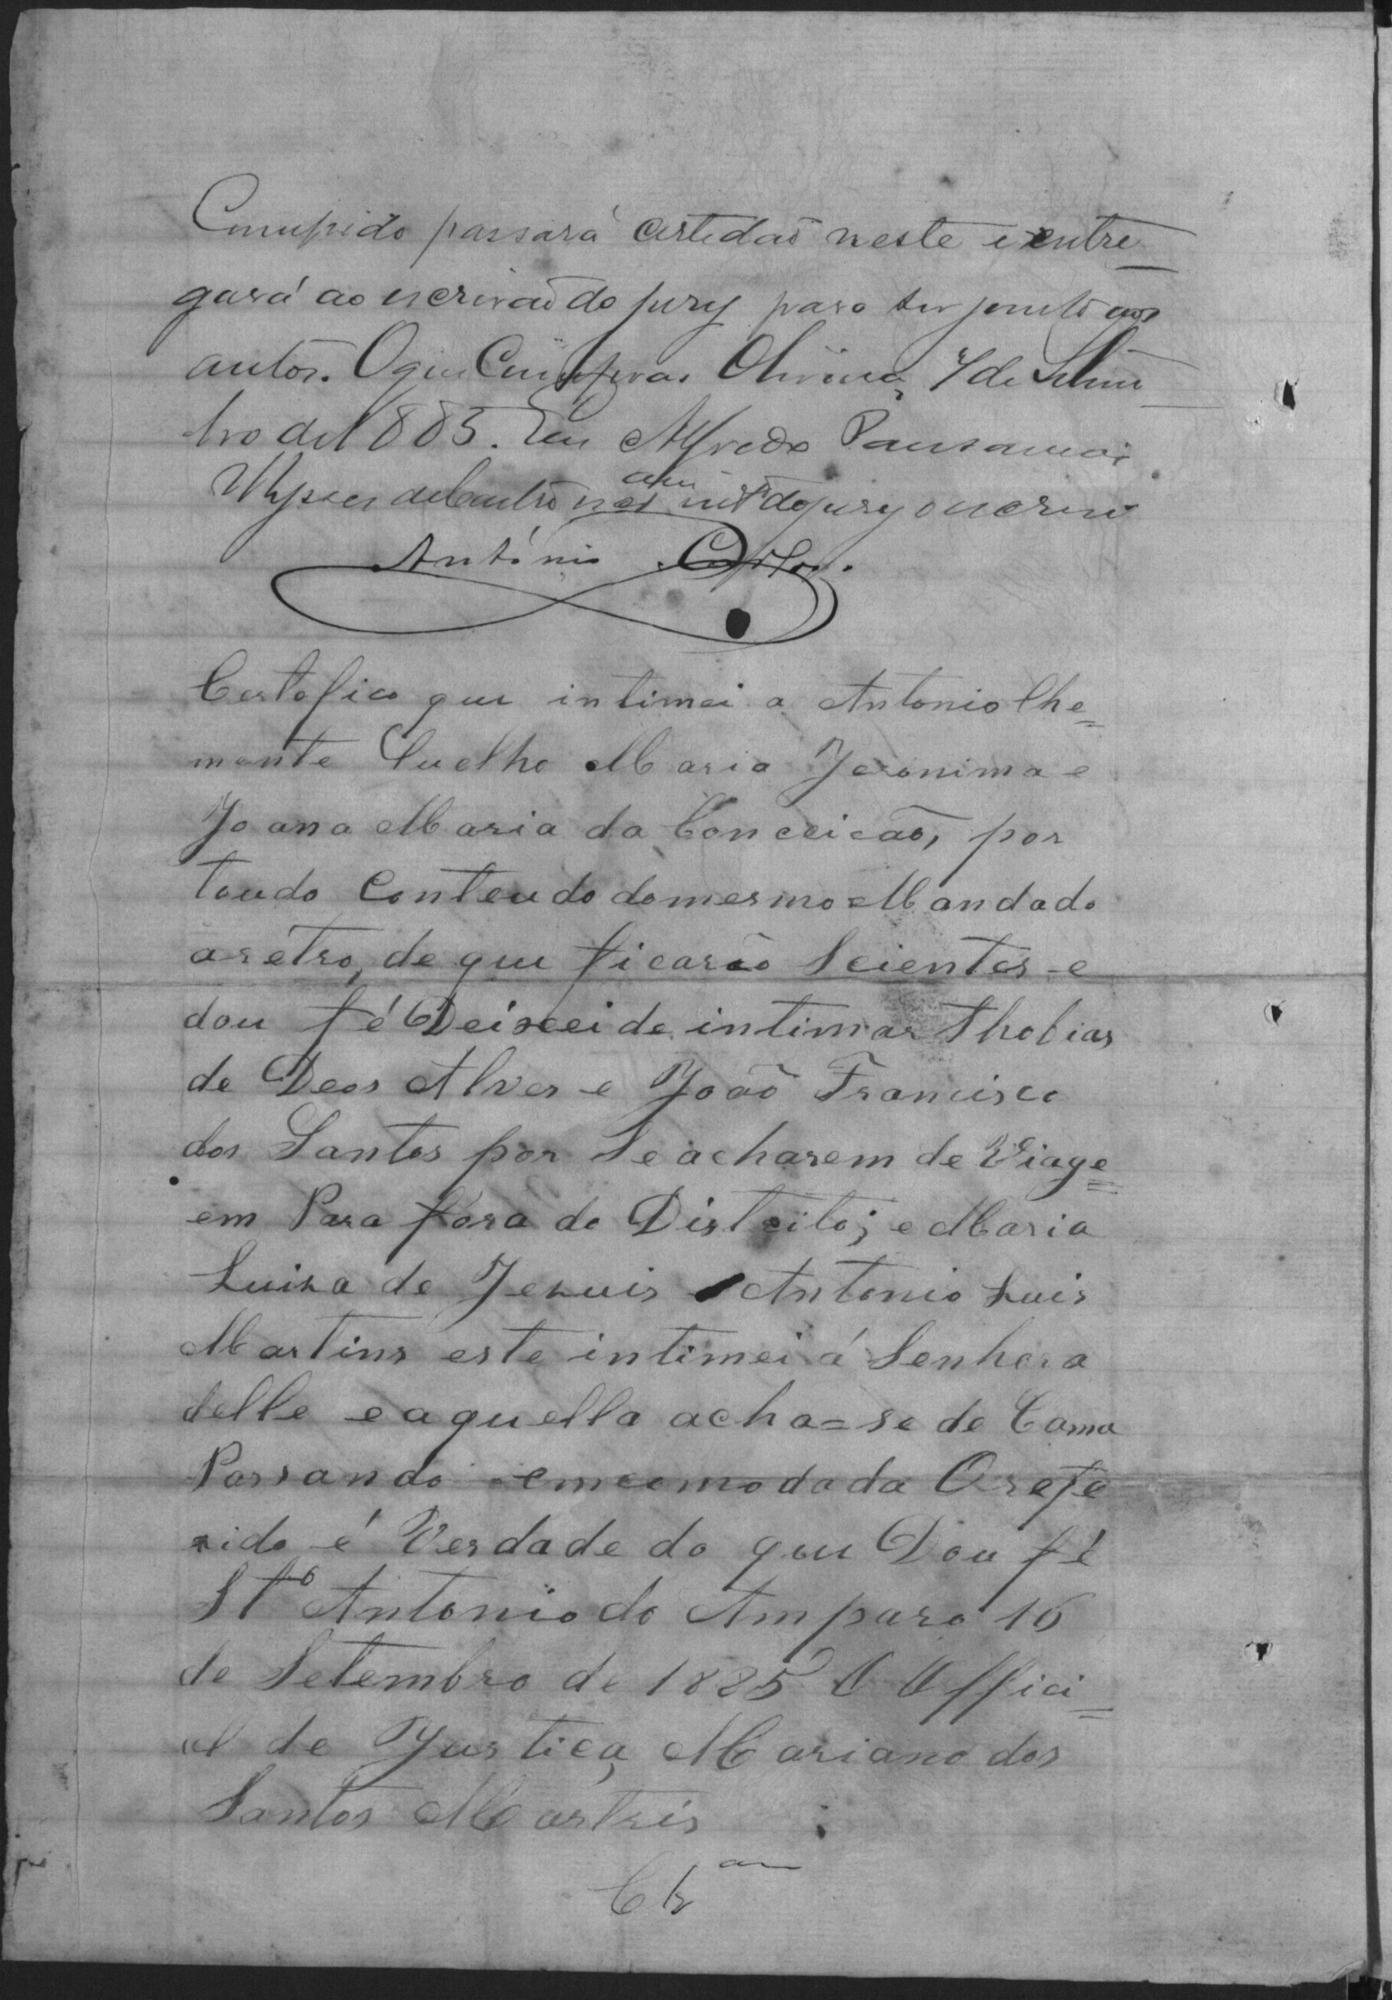 Cumprido passará certidaõ neste e entre
gará ao escrivaõ do jury para ser junto aos
autos. O que Cumpra. Oliveira, 7 de Setem
bro de 1885. Eu Alfredo Pausanias
Ulysses de Castro no int.º do jury o escrevi
António Carlos.
Certefico que intimei a Antonio Che=
monte Cuelho Maria Jeronima e
Joana Maria da Conceicaõ, por
toudo Conteudo domesmo Mandado
arétro, de que ficaraõ Scientes e
dou fé Deixei de intimar Thobias
de Deos Alves e João Francisco
dos Santos por Se acharem de Viage=
em Para fóra do Distrito; e Maria
Luiza de Jezuis e Antonio Luis
Martins este intimei á Senhora
delle e aquella acha=se de Cama
Passando emcomodada O refe
rido é Verdade do que Dou fé
Stº Antonio do Amparo 16
de Setembro de 1885 O Offici=
al de Justiça, Mariano dos
Santos Martris